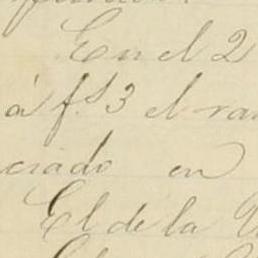 En el 2
á f.s 3 el ra
ciado en
El de la